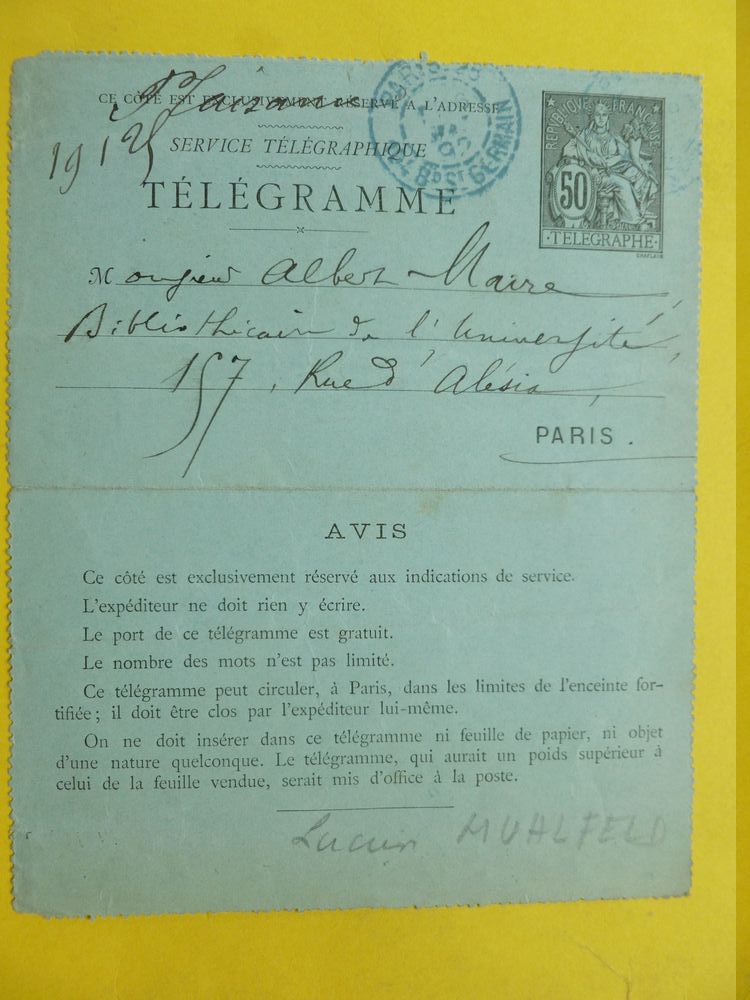 CE CÔTÉ EST EXCLUSIVEMENT RÉSERVÉ A L'ADRESSE
PARIS
Bd St GERMAIN
REPUBLIQUE FRANÇAISE
50
TELEGRAPHE
CHAPLAIN
SERVICE TÉLÉGRAPHIQUE
TÉLÉGRAMME
Monsieur Albert Maire
Bibliothécaire de l'Université,
157, Rue d'Alésia,
PARIS.
AVIS
Ce côté est exclusivement réservé aux indications de service.
L'expéditeur ne doit rien y écrire.
Le port de ce télégramme est gratuit.
Le nombre des mots n'est pas limité.
Ce télégramme peut circuler, à Paris, dans les limites de l'enceinte for-
tifiée; il doit être clos par l'expéditeur lui-même.
On ne doit insérer dans ce télégramme ni feuille de papier, ni objet
d'une nature quelconque. Le télégramme, qui aurait un poids supérieur à
celui de la feuille vendue, serait mis d'office à la poste.
Lucien MUHLFELD